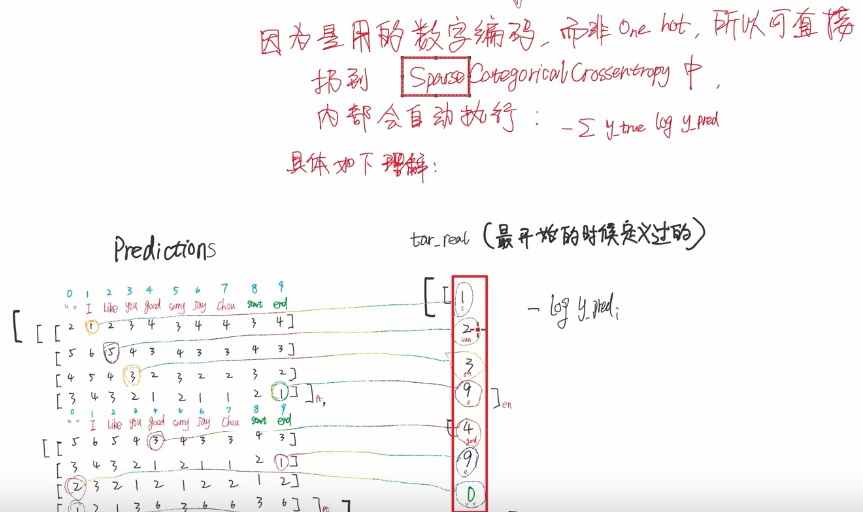 因为是用的数字编码，而非 One hot，所以可直接
扔到 SparseCategoricalCrossentropy 中，
内部会自动执行： -Σ y_true log y_pred
具体如下理解：
Predictions
tar_real (最开始的时候定义过的)
0 1 2 3 4 5 6 7 8 9
" " I like you good sorry Jay Chou start end
[ [ [ 2 1 2 3 4 3 4 4 3 4 ]
[ 5 6 5 4 3 4 3 3 4 3 ]
[ 4 5 4 3 2 3 2 2 3 2 ]
[ 3 4 3 2 1 2 1 1 2 1 ] ] pt,
0 1 2 3 4 5 6 7 8 9
" " I like you good sorry Jay Chou start end
[ [ 5 6 5 4 3 4 3 3 4 3 ]
[ 3 4 3 2 1 2 1 1 2 1 ]
[ 2 3 2 1 2 1 2 2 1 2 ]
[ 1 2 1 3 6 3 6 6 3 6 ] ] pt ]
[ [ 1
2
like
3
9
] en
[ 4
good
9
0
- log y_pred;